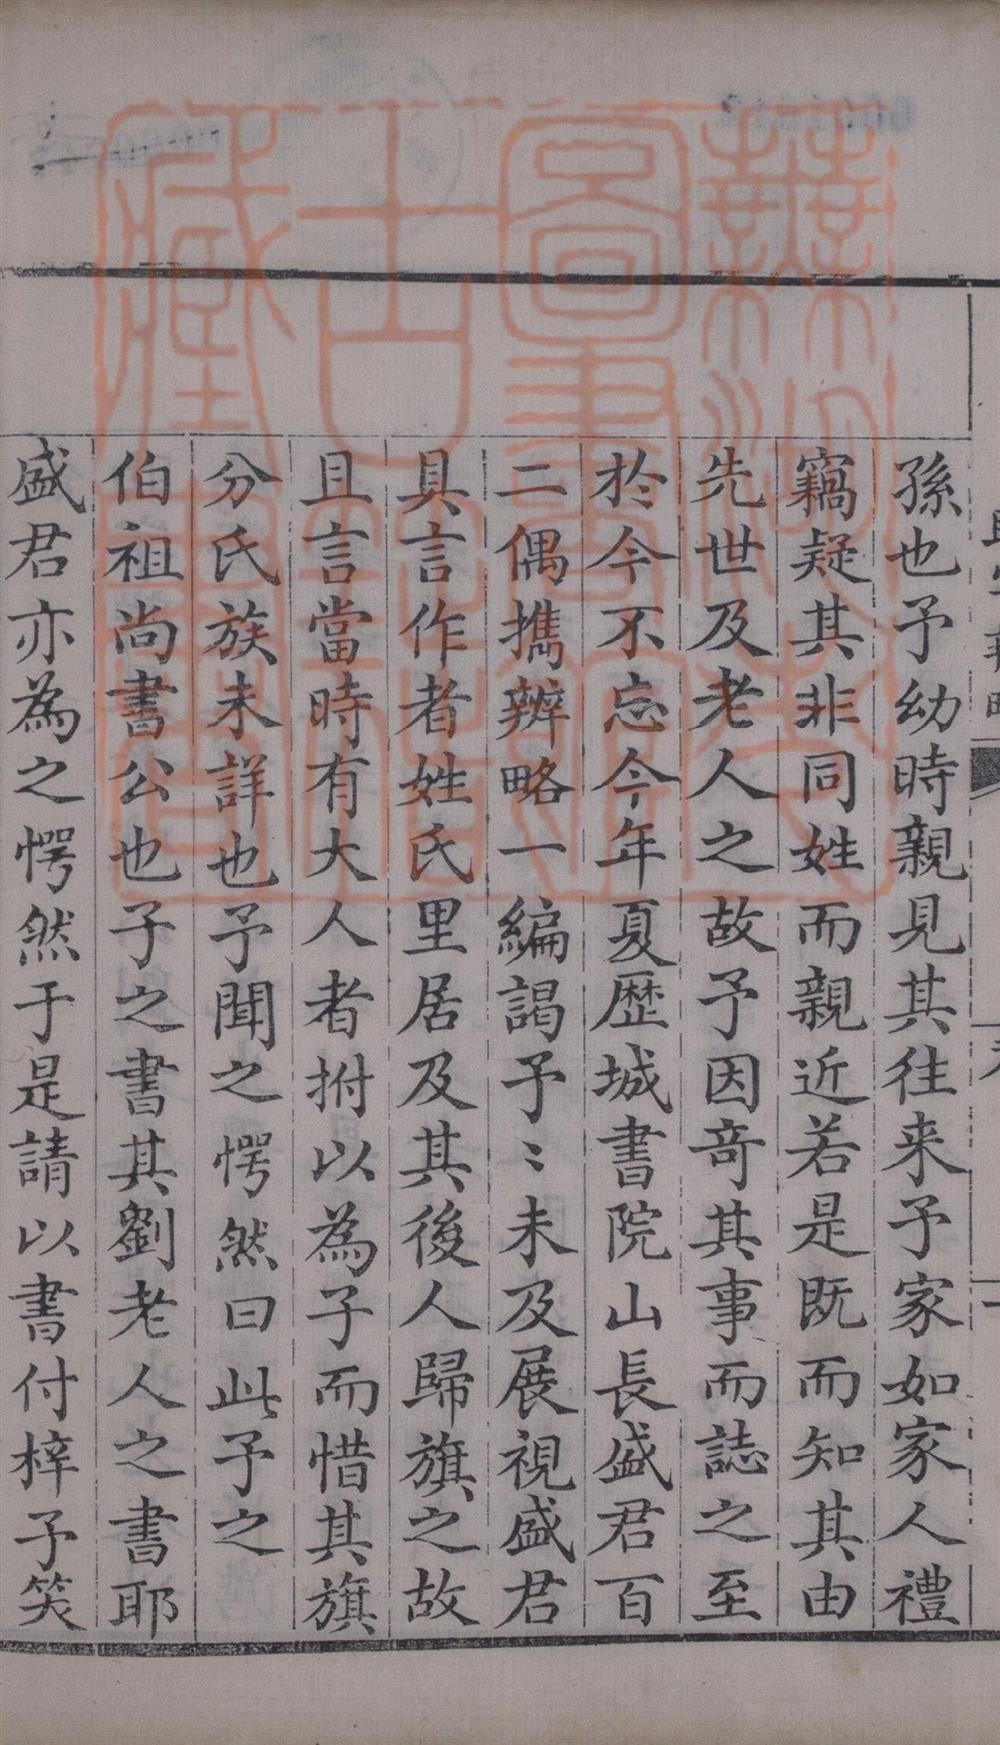 孫也予幼時親見其往来予家如家人禮
竊疑其非同姓而親近若是既而知其由
先世及老人之故予因竒其事而誌之至
於今不忘今年夏歴城書院山長盛君百
二偶攜辨略一編謁予〻未及展視盛君
具言作者姓氏里居及其後人歸旗之故
且言當時有大人者拊以為子而惜其旗
分氏族未詳也予聞之愕然曰此予之
伯祖尚書公也子之書其劉老人之書耶
盛君亦為之愕然于是請以書付梓予笑